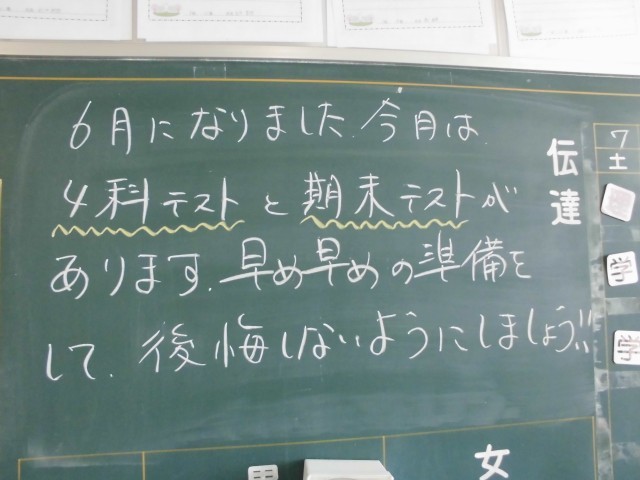 6月になりました.今月は.
4科テストと期末テストが
あります.早め早めの準備を
して.後悔しないようにしましょう!!
伝達
7
土
学
学
女